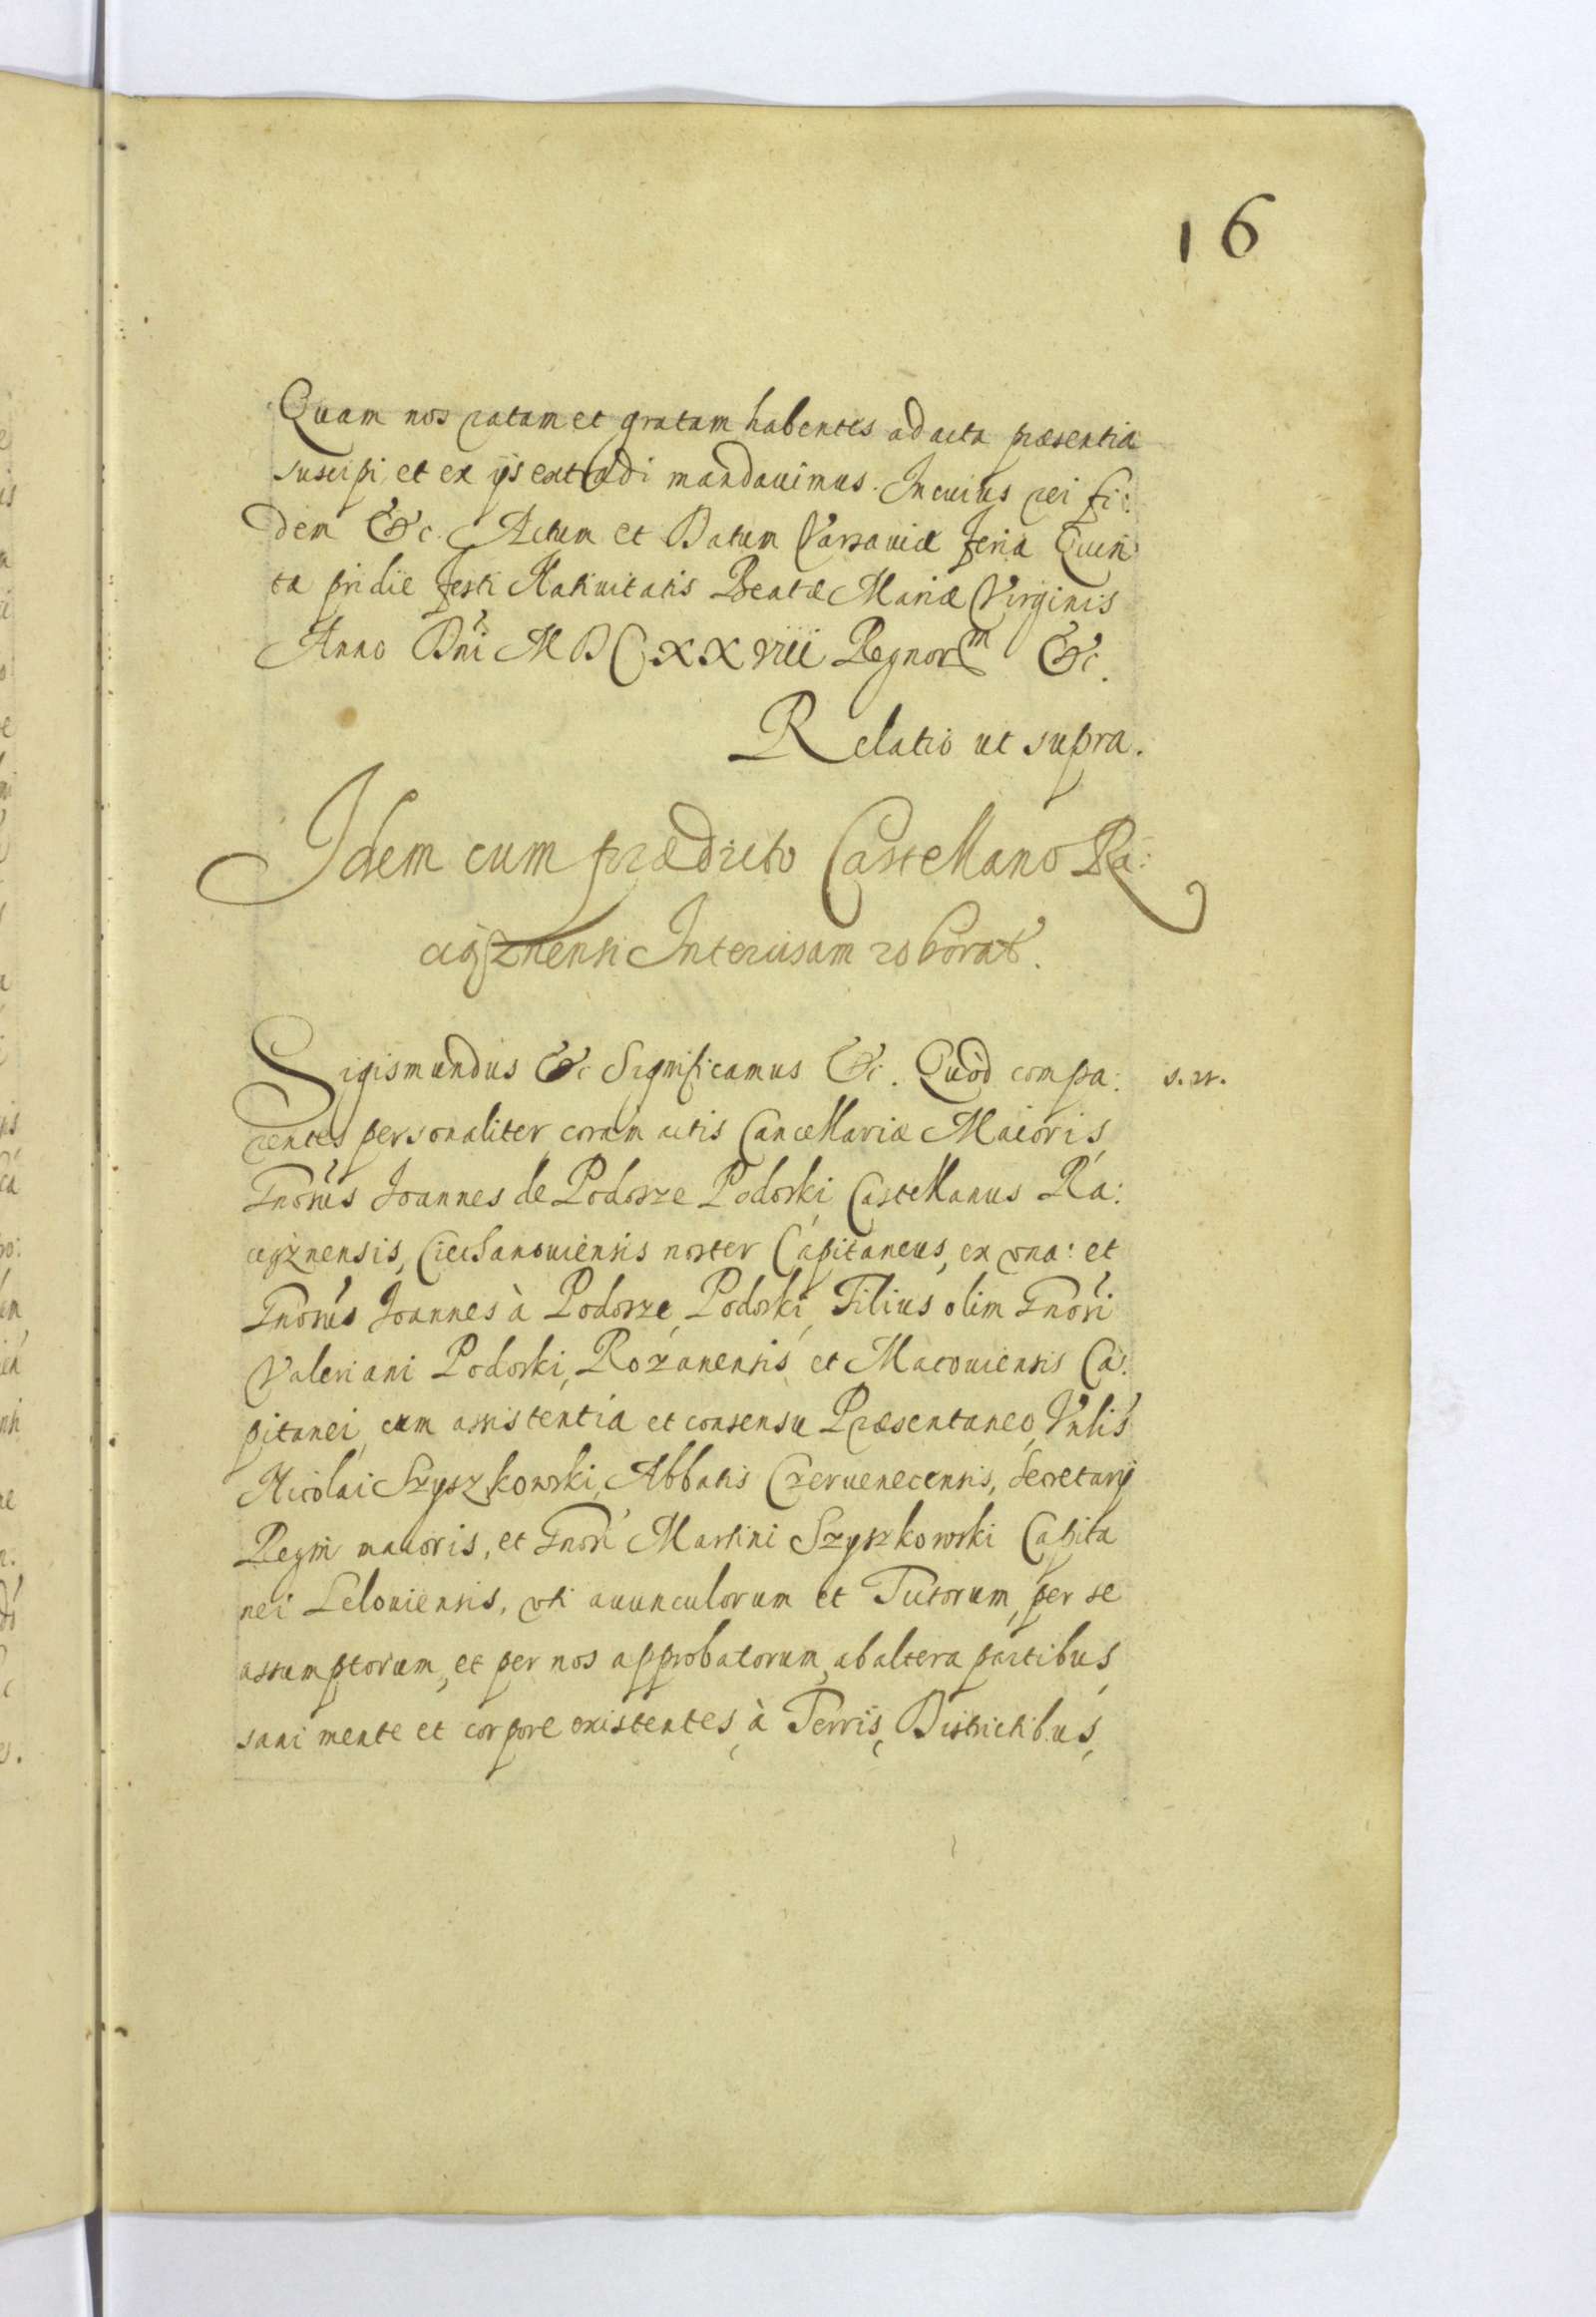 16
Quam nos ratam et gratam habentes ad acta præsentia
suscipi, et ex ijs extradi mandauimus. In cuius rei fi:
dem &c. Actum et Datum Varsauiæ feria Quin
ta pridie festi Natiuitatis Beatæ Mariæ Virginis
Anno Dni MDCXXVIII Regnorm &c.
Relatio ut supra.
Idem cum prædicto Castellano Ra:
ciążnensi Intercisam roborat.
Sigismundus &c Significamus &c. Quòd compa: s. n.
rentes personaliter coram actis Cancellariæ Maioris,
Gnosus Joannes de Podosze Podoski, Castellanus Ra:
ciążnensis, Ciechanouiensis noster Capitaneus, ex vna: et
Gnosus Joannes à Podosze, Podoski, Filius olim Gnosi
Valeriani Podoski, Rożanensis et Macouiensis Ca:
pitanei, cum assistentia et consensu Præsentaneo, Vnlis
Nicolai Szyszkowski, Abbatis Czeruenecensis, Secretarij
Regni maioris, et Gnosi Martini Szyszkowski Capita
nei Leloviensis, vti auunculorum et Tutorum, per se
assumptorum, et per nos approbatorum, ab altera partibus,
sani mente et corpore existentes, à Terris, Districtibus,